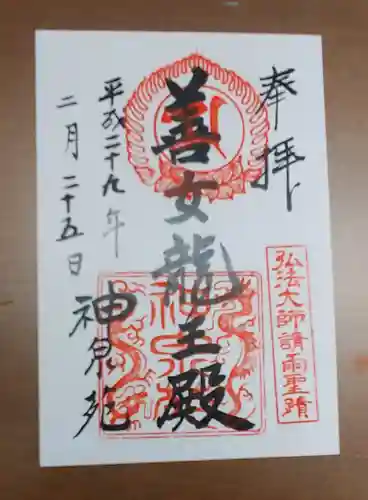 奉拝
弘法大師請雨聖蹟
善女龍王殿
平成二十九年
二月二十五日
神泉苑